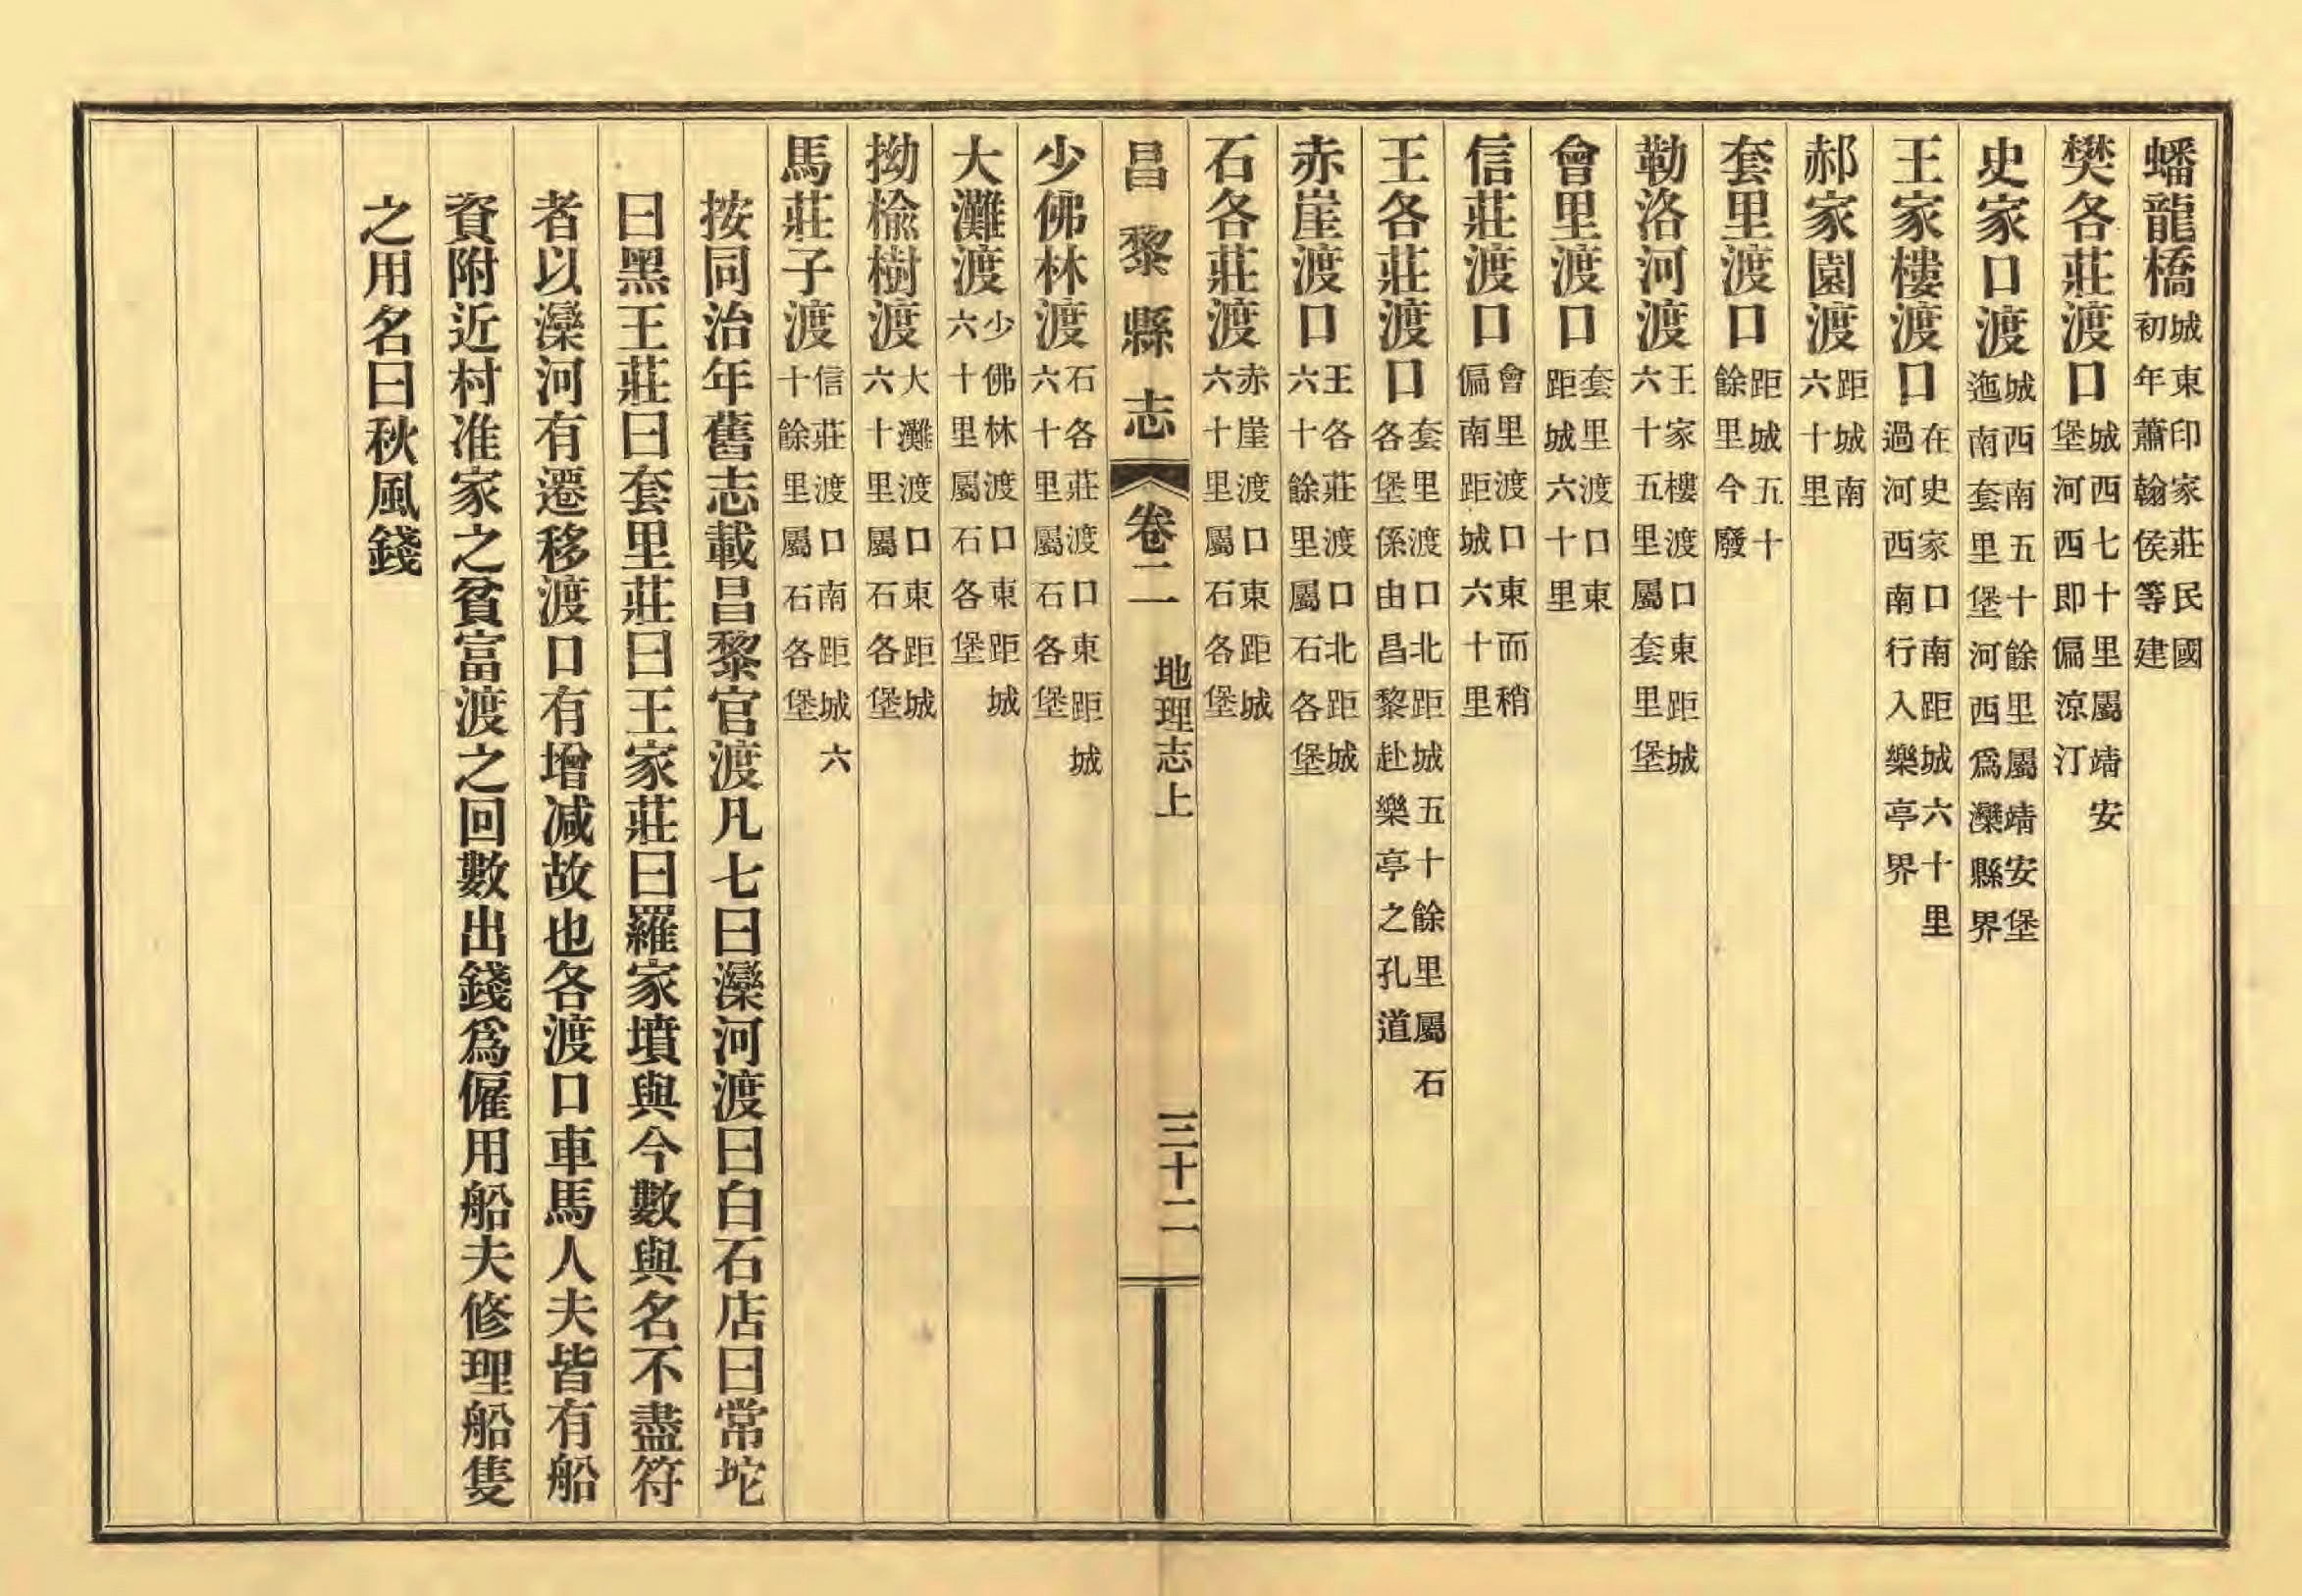 蟠龍橋城東印家莊民國初年蕭翰侯等建
樊各莊渡口城西七十里屬靖安堡河西西即偏涼汀
史家口渡城西南五十餘里屬靖安堡迤南套里堡河西爲灤縣界
王家樓渡口在史家口南距城六十里過河西南行入樂亭界
郝家園渡距城南六十里
套里渡口距城五十餘里今廢
勒洛河渡王家樓渡口東距城六十五里屬套里堡
會里渡口套里渡口東距城六十里
信莊渡口會里渡口東而稍偏南距城六十里
王各莊渡口套里渡口北距城五十餘里屬石各堡係由昌黎赴樂亭之孔道
赤崖渡口王各莊渡口北距城六十餘里屬石各堡
石各莊渡赤崖渡口東距城六十里屬石各堡
昌黎縣志 卷二 地理志上 三十二
少佛林渡石各莊渡口東距城六十里屬石各堡
大灘渡少佛林渡口東距城六十里屬石各堡
拗榆樹渡大灘渡口東距城六十里屬石各堡
馬莊子渡信莊渡口南距城六十餘里屬石各堡
按同治年舊志載昌黎官渡凡七曰灤河渡曰白石店曰常坨
曰黑王莊曰套里莊曰王家莊曰羅家墳與今數與名不盡符
者以灤河有遷移渡口有增减故也各渡口車馬人夫皆有船
資附近村准家之貧富渡之回數出錢爲僱用船夫修理船隻
之用名曰秋風錢